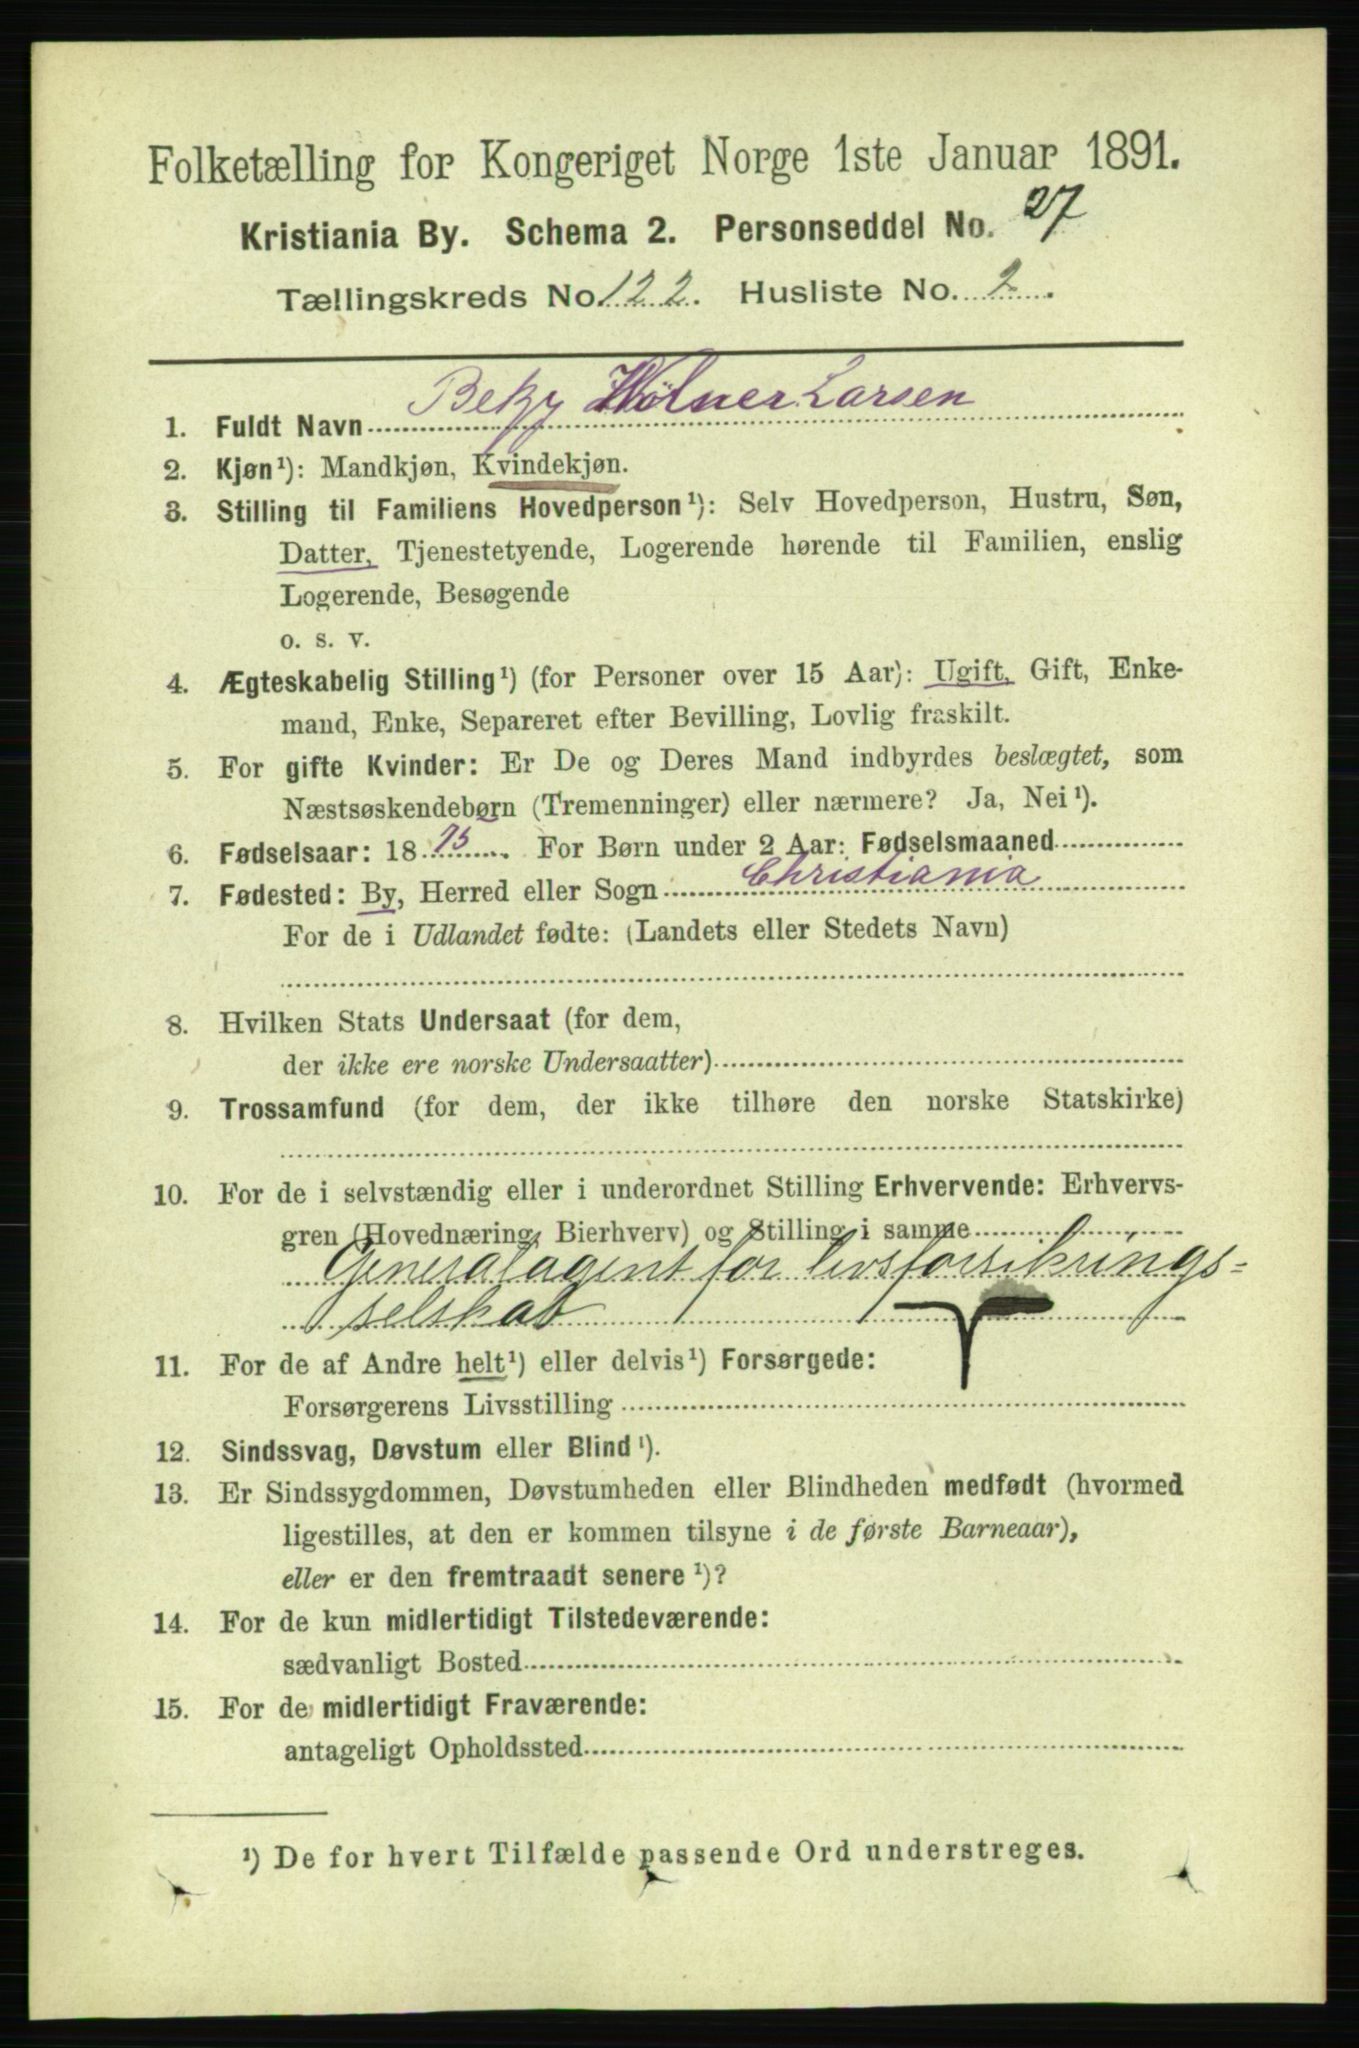 Folketælling for Kongeriget Norge 1ste Januar 1891.
Kristiania By. Schema 2. Personseddel No. 27
Tællingskreds No. 122. Husliste No. 2.
1. Fuldt Navn Betzy Hølner Larsen
2. Kjøn¹): Mandkjøn, Kvindekjøn.
3. Stilling til Familiens Hovedperson¹): Selv Hovedperson, Hustru, Søn,
Datter, Tjenestetyende, Logerende hørende til Familien, enslig
Logerende, Besøgende
o. s. v.
4. Ægteskabelig Stilling¹) (for Personer over 15 Aar): Ugift, Gift, Enke-
mand, Enke, Separeret efter Bevilling, Lovlig fraskilt.
5. For gifte Kvinder: Er De og Deres Mand indbyrdes beslægtet, som
Næstsøskendebørn (Tremenninger) eller nærmere? Ja, Nei¹).
6. Fødselsaar: 1875. For Børn under 2 Aar: Fødselsmaaned
7. Fødested: By, Herred eller Sogn Christiania
For de i Udlandet fødte: (Landets eller Stedets Navn)
8. Hvilken Stats Undersaat (for dem,
der ikke ere norske Undersaatter)
9. Trossamfund (for dem, der ikke tilhøre den norske Statskirke)
10. For de i selvstændig eller i underordnet Stilling Erhvervende: Erhvervs-
gren (Hovednæring, Bierhverv) og Stilling i samme
Generalagent for livsforsikrings=
selskab
11. For de af Andre helt¹) eller delvis¹) Forsørgede:
Forsørgerens Livsstilling
12. Sindssvag, Døvstum eller Blind¹).
13. Er Sindssygdommen, Døvstumheden eller Blindheden medfødt (hvormed
ligestilles, at den er kommen tilsyne i de første Barneaar),
eller er den fremtraadt senere¹)?
14. For de kun midlertidigt Tilstedeværende:
sædvanligt Bosted
15. For de midlertidigt Fraværende:
antageligt Opholdssted
¹) De for hvert Tilfælde passende Ord understreges.